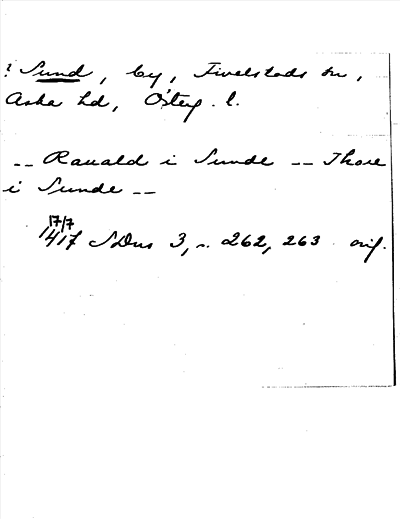 ? Sund, by, Fivelstads sn,
Aska hd, Österg. l.
-- Rauald i Sunde -- Thore
i Sunde --
17/7
1417 SDns 3, n. 262, 263 orig.